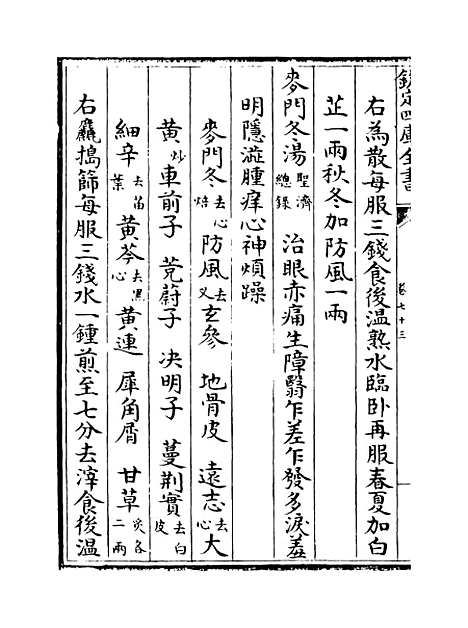 欽定四庫全書
卷七十三
右為散每服三錢食後温熟水臨卧再服春夏加白
芷一兩秋冬加防風一兩
麥門冬湯聖濟總錄　治眼赤痛生障翳乍差乍發多淚羞
明隱澁腫痒心神煩躁
麥門冬去心焙　防風去叉　玄參　地骨皮　遠志去心　大
黄炒　車前子　茺蔚子　决明子　蔓荆實去白皮
細辛去苗葉　黄芩去黑心　黄連　犀角屑　甘草炙各二兩
右麤搗篩每服三錢水一鍾煎至七分去滓食後温